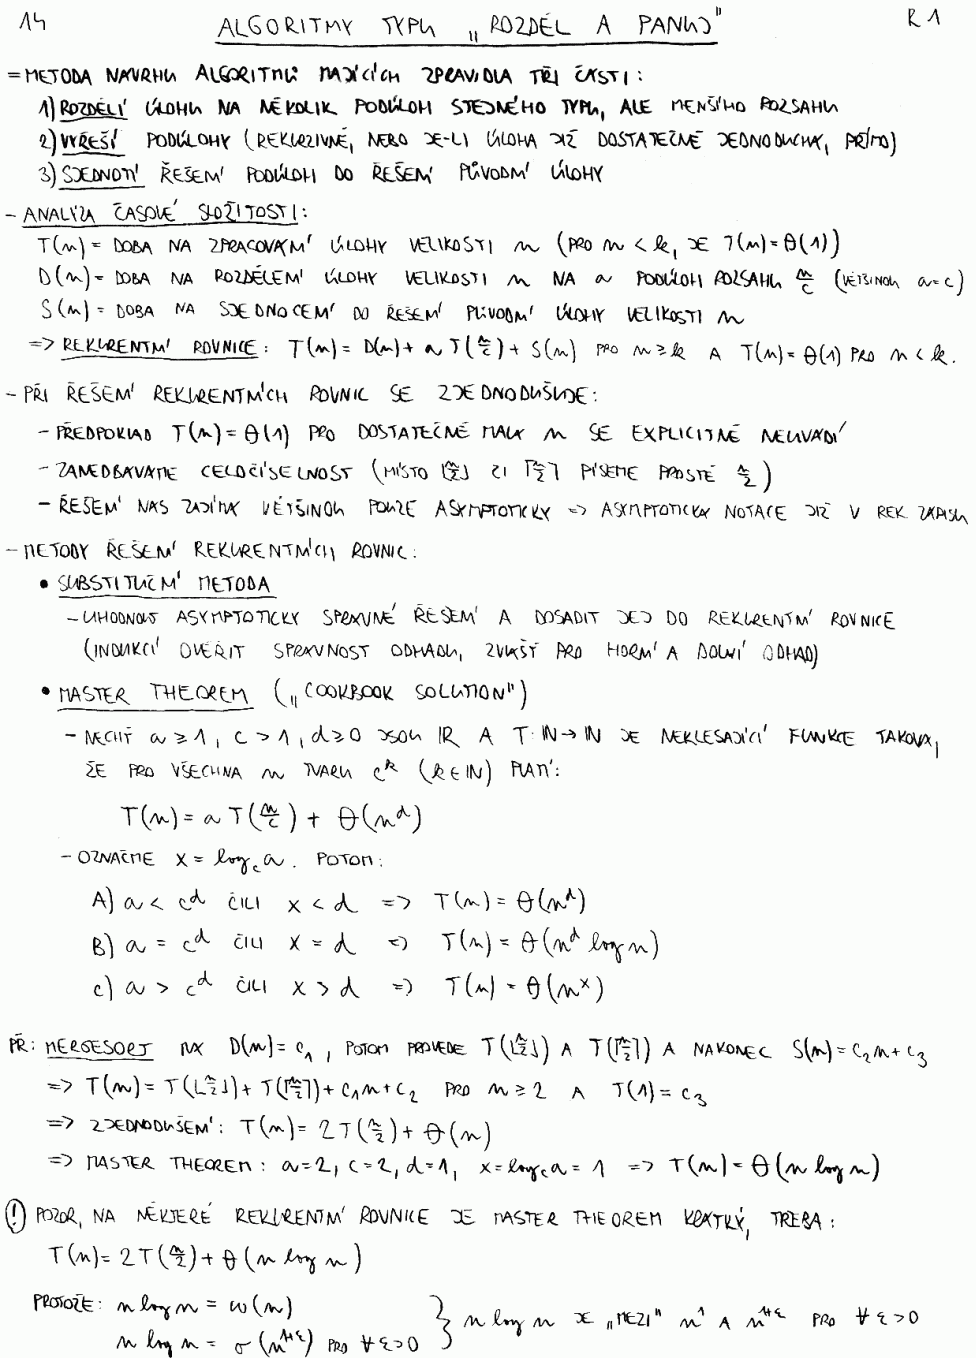 14 ALGORITMY TYPU „ROZDĚL A PANUJ" R1
= METODA NÁVRHU ALGORITMŮ MAJÍCÍCH ZPRAVIDLA TŘI ČÁSTI:
1) ROZDĚLÍ ÚLOHU NA NĚKOLIK PODÚLOH STEJNÉHO TYPU, ALE MENŠÍHO ROZSAHU
2) VYŘEŠÍ PODÚLOHY (REKURZIVNĚ, NEBO JE-LI ÚLOHA JIŽ DOSTATEČNĚ JEDNODUCHÁ, PŘÍMO)
3) SJEDNOTÍ ŘEŠENÍ PODÚLOH DO ŘEŠENÍ PŮVODNÍ ÚLOHY
- ANALÝZA ČASOVÉ SLOŽITOSTI:
T(n) = DOBA NA ZPRACOVÁNÍ ÚLOHY VELIKOSTI n (PRO n < k, JE T(n) = Θ(1))
D(n) = DOBA NA ROZDĚLENÍ ÚLOHY VELIKOSTI n NA a PODÚLOH ROZSAHU n/c (VĚTŠINOU a = c)
S(n) = DOBA NA SJEDNOCENÍ DO ŘEŠENÍ PŮVODNÍ ÚLOHY VELIKOSTI n
=> REKURENTNÍ ROVNICE: T(n) = D(n) + a T(n/c) + S(n) PRO n ≥ k A T(n) = Θ(1) PRO n < k.
- PŘI ŘEŠENÍ REKURENTNÍCH ROVNIC SE ZJEDNODUŠUJE:
- PŘEDPOKLAD T(n) = Θ(1) PRO DOSTATEČNĚ MALÁ n SE EXPLICITNĚ NEUVÁDÍ
- ZANEDBÁVÁME CELOČÍSELNOST (MÍSTO ⌊n/2⌋ ČI ⌈n/2⌉ PÍŠEME PROSTĚ n/2)
- ŘEŠENÍ NÁS ZAJÍMÁ VĚTŠINOU POUZE ASYMPTOTICKY => ASYMPTOTICKÁ NOTACE JIŽ V REK. ZÁPISU
- METODY ŘEŠENÍ REKURENTNÍCH ROVNIC:
• SUBSTITUČNÍ METODA
- UHODNOUT ASYMPTOTICKY SPRÁVNÉ ŘEŠENÍ A DOSADIT JEJ DO REKURENTNÍ ROVNICE
(INDUKCÍ OVĚŘIT SPRÁVNOST ODHADU, ZVLÁŠŤ PRO HORNÍ A DOLNÍ ODHAD)
• MASTER THEOREM („COOKBOOK SOLUTION")
- NECHŤ a ≥ 1, c > 1, d ≥ 0 JSOU ℝ A T: ℕ → ℕ JE NEKLESAJÍCÍ FUNKCE TAKOVÁ,
ŽE PRO VŠECHNA n TVARU c^k (k ∈ ℕ) PLATÍ:
T(n) = a T(n/c) + Θ(n^d)
- OZNAČME x = log_c a. POTOM:
A) a < c^d ČILI x < d => T(n) = Θ(n^d)
B) a = c^d ČILI x = d => T(n) = Θ(n^d log n)
C) a > c^d ČILI x > d => T(n) = Θ(n^x)
PŘ: MERGESORT MÁ D(n) = c₁, POTOM PROVEDE T(⌊n/2⌋) A T(⌈n/2⌉) A NAKONEC S(n) = c₂n + c₃
=> T(n) = T(⌊n/2⌋) + T(⌈n/2⌉) + c₁n + c₂ PRO n ≥ 2 A T(1) = c₃
=> ZJEDNODUŠENÍ: T(n) = 2T(n/2) + Θ(n)
=> MASTER THEOREM: a=2, c=2, d=1, x = log_c a = 1 => T(n) = Θ(n log n)
! POZOR, NA NĚKTERÉ REKURENTNÍ ROVNICE JE MASTER THEOREM KRÁTKÝ, TŘEBA:
T(n) = 2T(n/2) + Θ(n log n)
PROTOŽE: n log n = ω(n)
n log n = o(n^{1+ε}) PRO ∀ε>0 } n log n JE „MEZI" n^1 A n^{1+ε} PRO ∀ε>0